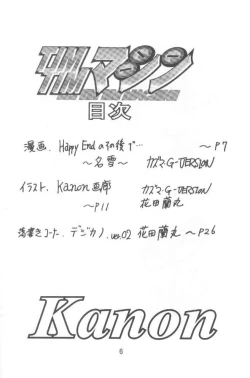 TIMマシン
目次
漫画. Happy Endのその後で… ～P7
～名雪～ カズマ・G-VERSION
イラスト. Kanon画廊 カズマ・G-VERSION
～P11 花田蘭丸
落書きコーナー. デジカノ.ver.02 花田蘭丸 ～P26
Kanon
6